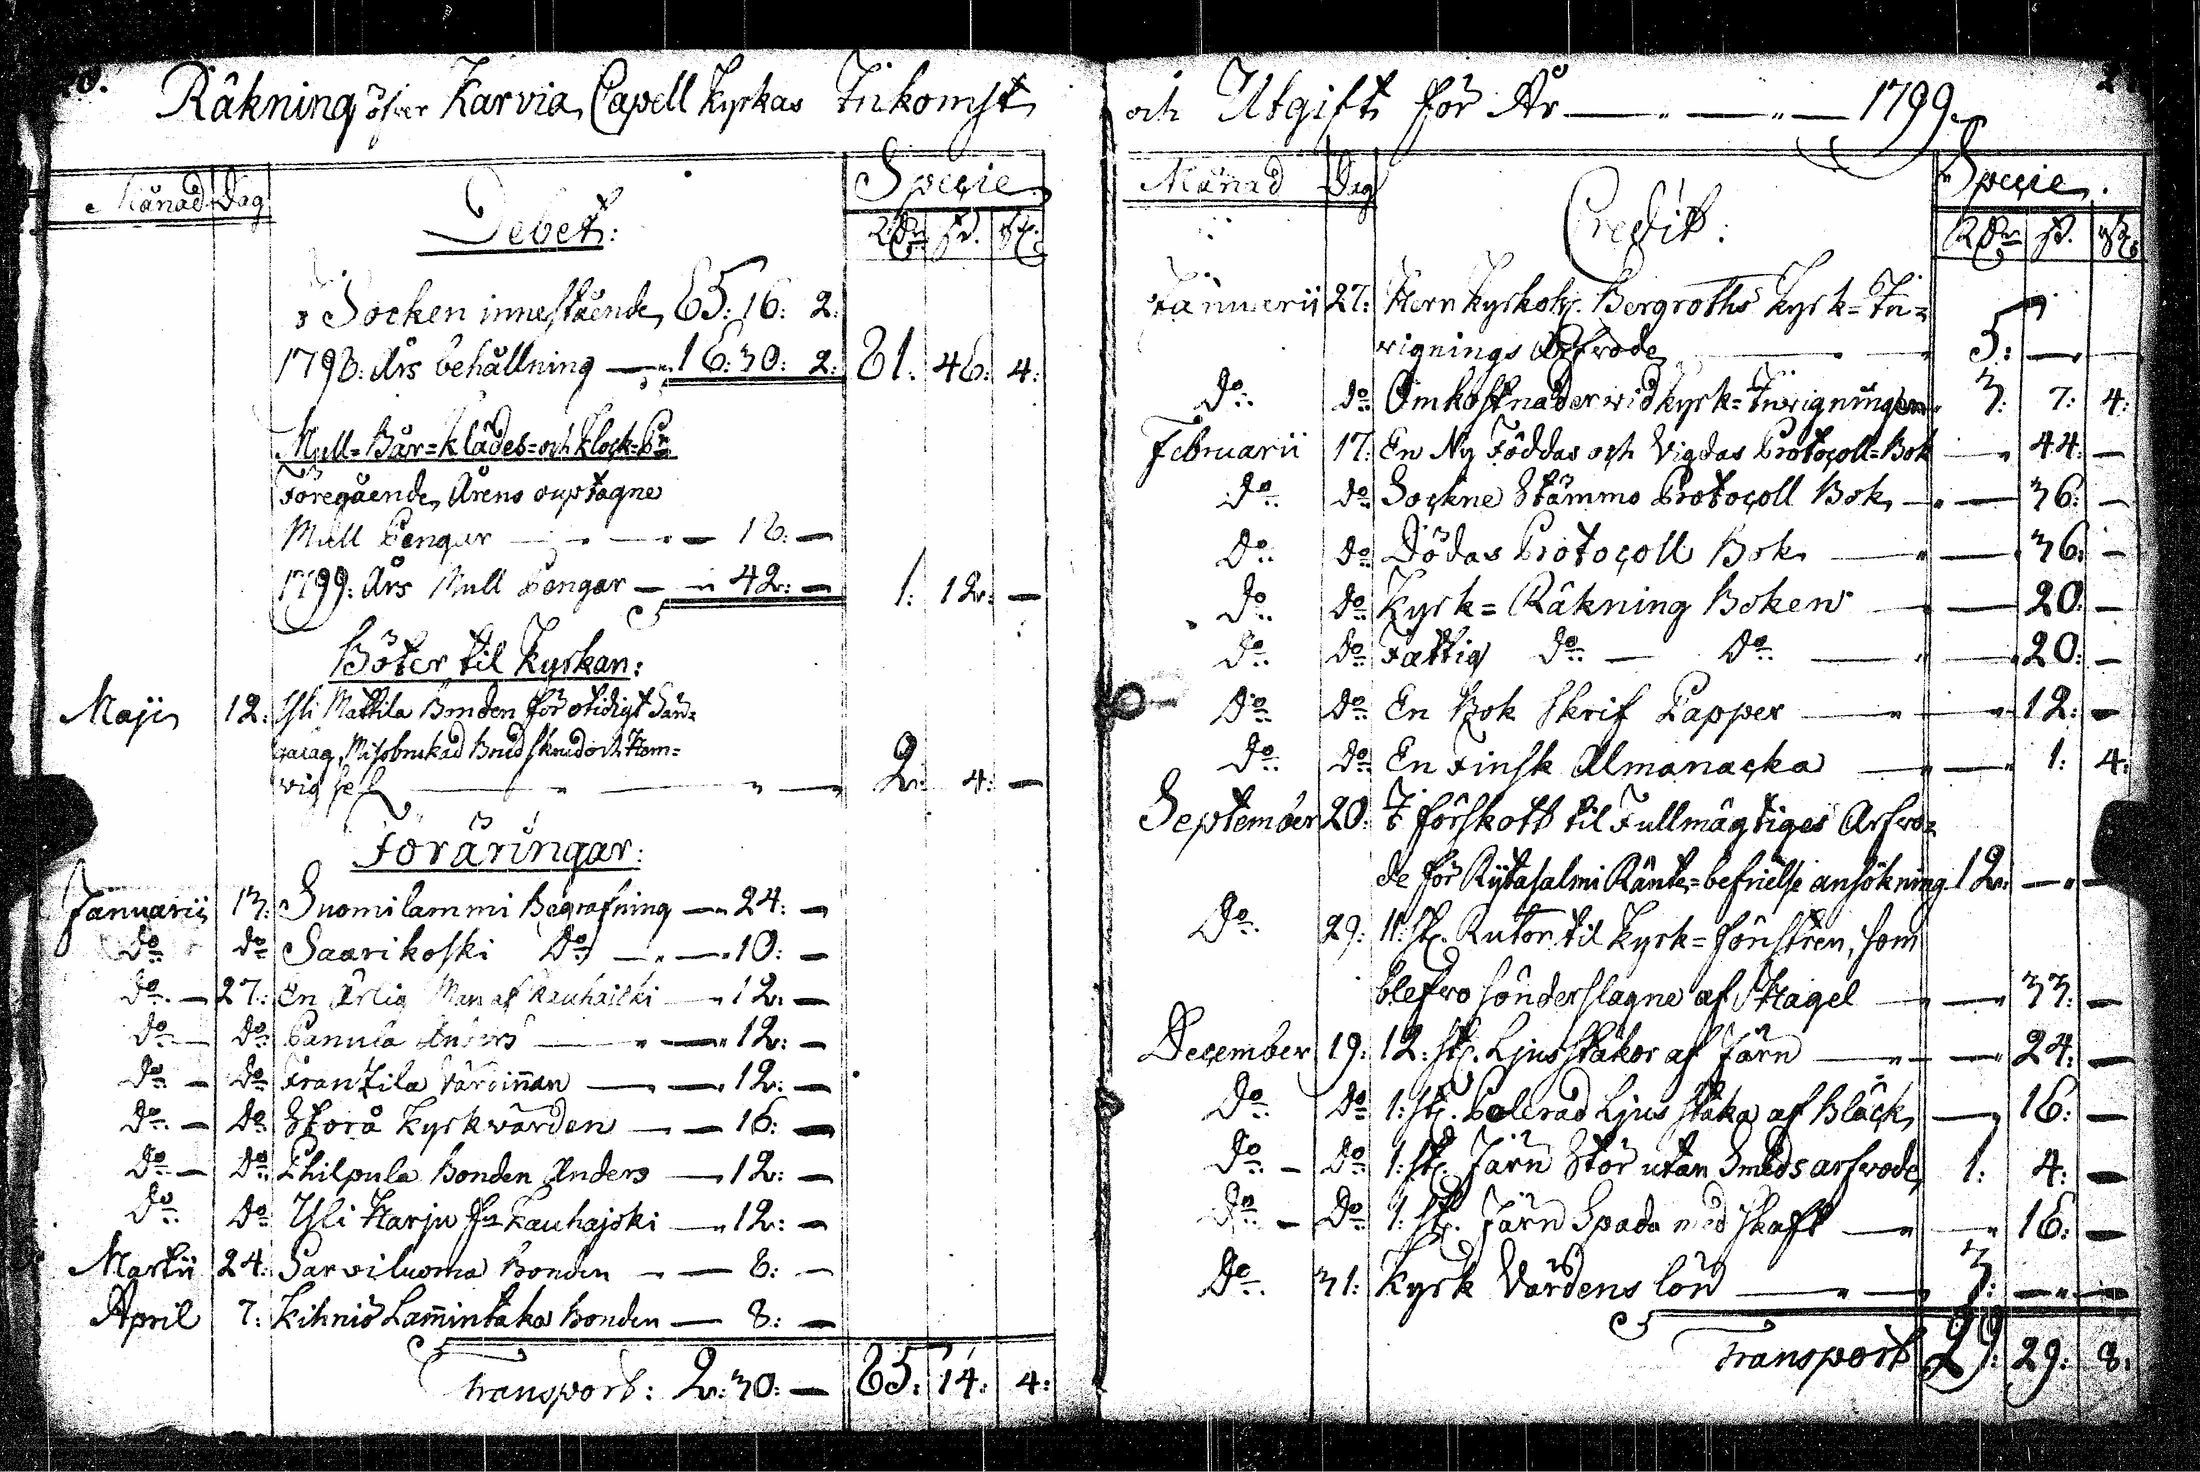 8.
Räkning öfver Karvia Capell Kyrkas Inkomst
Månad Dag Debet: Specie
RDr ß. rst.
I Socken innestående, 65: 16: 2:
1798: Års behållning — 16: 30: 2: 81: 46: 4:
Mull- Bår- Klädes- och Klock-Pr
Föregående Årens ouptagne
Mull Pengar — 18: —
1799: Års Mull Pengar — 42: — 1: 12: —
Böter til Kyrkan:
Maji 12: Yli Mattila Bonden för otidigt Sän-
galag, Missbrukad Brudskrud och Hem-
vigsel — 2: 4: —
Föräringar:
Januarii 13: Suomilammi Begrafning — 24: —
Do Do Saarikoski Do — 10: —
Do — 27: En Ärlig Man af Kauhajoki — 12: —
Do — Do Panula Anders — 12: —
Do — Do Frantzila Värdinnan — 12: —
Do — Do Storå Kyrkvärden — 16: —
Do — Do Philpula Bonden Anders — 12: —
Do Do Yli Harju fr Kauhajoki — 12: —
Martii 24: Sarviluoma Bonden — 8: —
April 7: Kihniö Lam̄intaka Bonden — 8: —
Transport: 2: 30: — 85: 14: 4:
och Utgift för År — 1799.
Månad Dag Credit: Specie.
RDr ß. rst
Januarii 27: Herr Kyrkoh. Bergroths Kyrk-In-
vignings Arfvode — 5: — —
Do Do Omkostnader vid Kyrk-Invigningen 3: 7: 4:
Februarii 17: En Ny Föddas och Vigdas Protocoll-Bok — 44: —
Do Do Sockne Stämmo Protocoll Bok — 36: —
Do Do Dödas Protocoll Bok — 36: —
Do Do Kyrk-Räkning Boken — 20: —
Do Do Fattig Do — Do — 20: —
Do Do En Bok Skrif Papper — 12: —
Do Do En Finsk Almanacka — 1: 4:
September 20: I förskott til Fullmägtiges Arfvo-
de för Kytäsalmi Ränte-befrielse ansökning 12: — —
Do 29: 11: st. Rutor til Kyrk-fönstren, som
blefvo sönderslagne af Hagel — 33: —
December 19: 12: st. Ljusstakar af Järn — 24: —
Do Do 1: st. Polerad Ljus staka af Bläck — 16: —
Do — Do 1: st. Järn Stör utan Smeds arfvode 1: 4: —
Do — Do 1: st. Järn Spada med skaft — 16: —
Do 31: Kyrk Värdens lön — 3: — —
Transport 29: 29: 8: